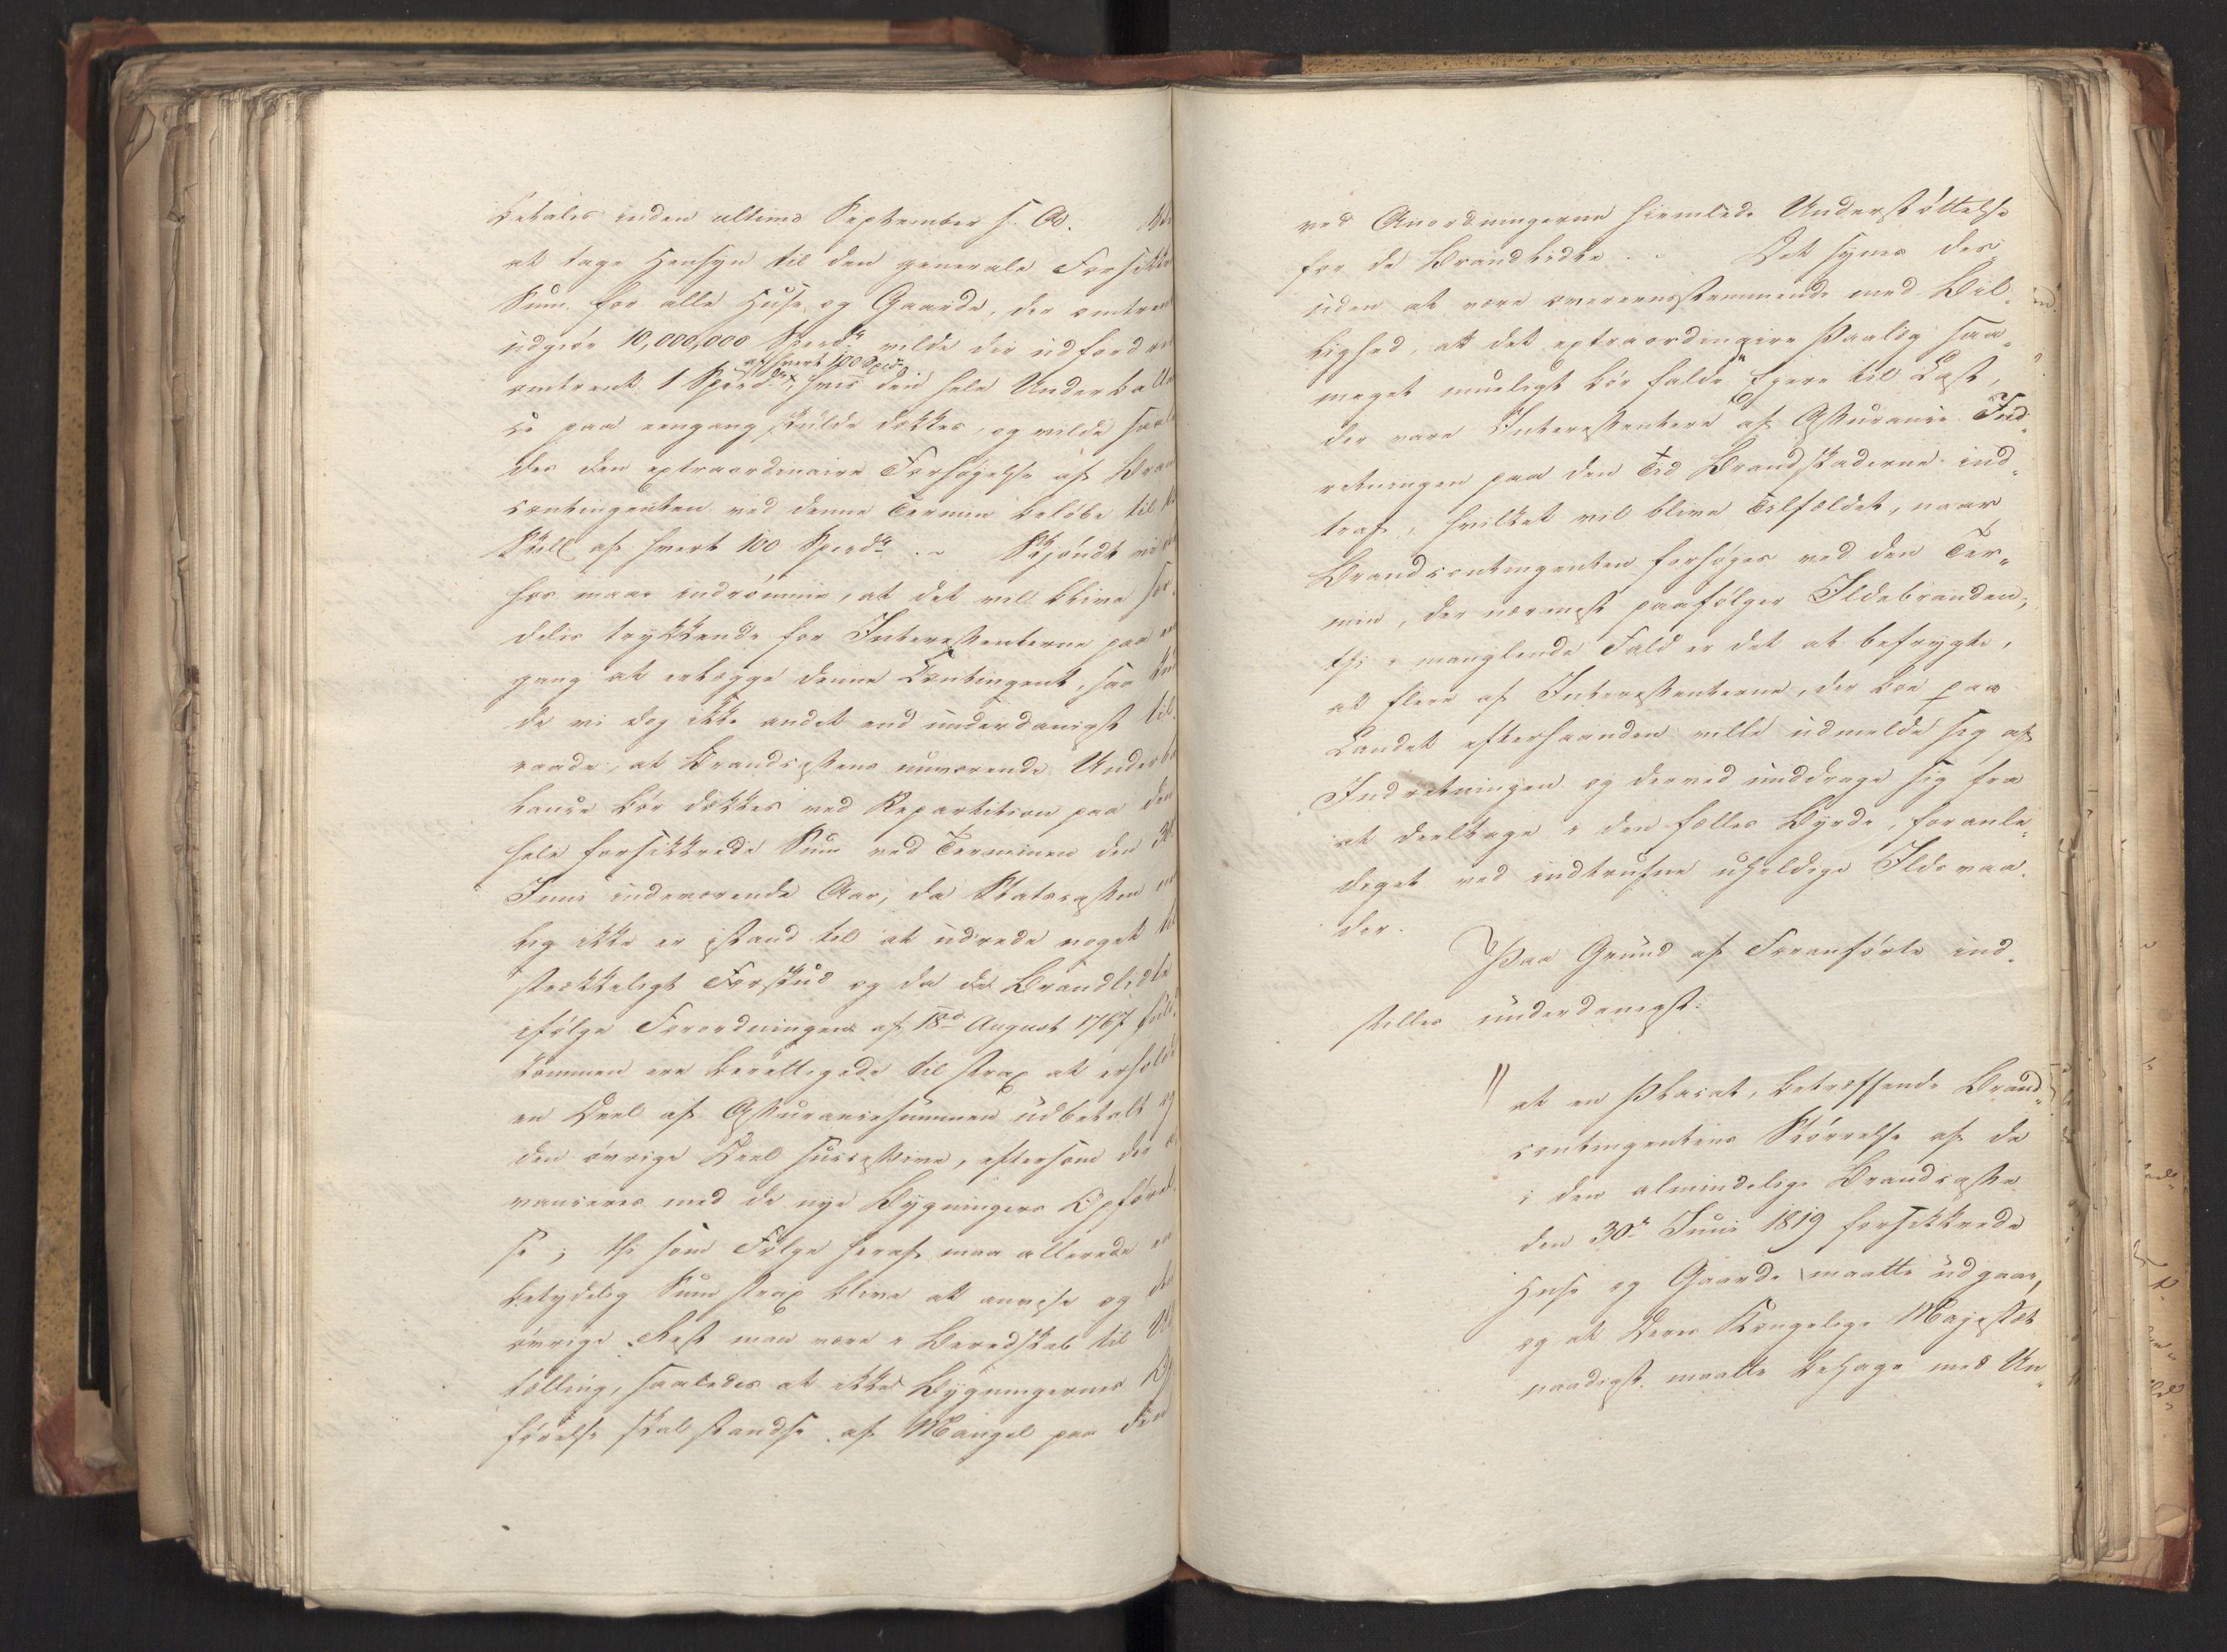 betales inden ultimo September s. A.
at tage Hensyn til den generale Forsikk
Sum for alle Huse og Gaarde, der omtrent
udgiør 10,000,000 Spedr vilde der udfordres
af hvert 100 Spd
omtrent 1 Spedr, hvis den hele Underbal
ce paa eengang skulde dækkes, og vilde saale
des den extraordinaire Forhøyelse af Bran
contingenten ved denne Termin beløbe til
Skill af hvert 100 Spedr. Skjøndt vi
hos maae indrømme, at det vil blive sær
deles trykkende for Interessenterne paa en
gang at erlægge denne Contingent, saa
de vi dog ikke andet end underdanigst til
raade, at Brandcassens nuværende Underba
lance bør dækkes ved Repartition paa den
hele forsikkrede Sum ved Terminen den 30
Juni indeværende Aar, da Statscassen
lig ikke er istand til at udrede noget til
strækkeligt Forskud og da de Brandlidte
ifølge Forordningen af 18d August 1767 fuld
kommen ere berettigede til strax at erholde
en Deel af Assurancesummen udbetalt og
den øvrige Deel successive, eftersom der a
vanceres med de nye Bygningers Opførel
se; thi som Følge heraf maa allerede en
betydelig Sum strax blive at anvise og den
øvrige Rest maa være i Beredskab til Ud
tælling, saaledes at ikke Bygningernes Op
førelse skal standse af Mangel paa den
ved Anordningerne hiemlede Understøttelse
for de Brandlidte. Det synes des
uden at være overeensstemmende med Bil
lighed, at det extraordinaire Paalæg saa
meget mueligt bør falde Eyere til Last,
der vare Interessentere af Assurance Ind
retningen paa den Tid Brandskaderne ind
traf, hvilket vil blive Tilfældet, naar
Brandcontingenten forhøyes ved den Ter
min, der nærmest paafølger Ildebranden;
thi i manglende Fald er det at befrygte,
at flere af Interessenterne, der boe paa
Landet efterhaanden ville udmelde sig af
Indretningen og derved unddrage sig fra
at deeltage i den fælles Byrde, foranle
diget ved indtrufne uheldige Ildsvaa
der.
Paa Grund af Foranførte ind
stilles underdanigst:
at en Placat, betreffende Brand
contingentens Størrelse af de
i den almindelige Brandcasse
den 30te Juni 1819 forsikkrede
Huse og Gaarde maatte udgaae,
og at Deres Kongelige Majestæt
naadigst maatte behage med Un